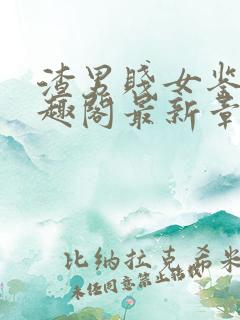 渣男贱女鉴
趣阁最新章
比纳拉克希米
未经同意禁止转载